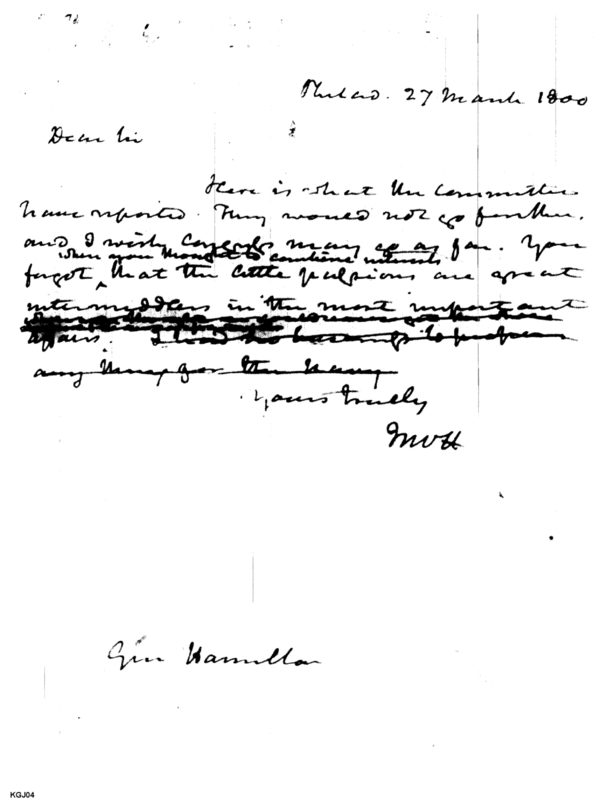 Philad. 27 March 1800
Dear Sir
Here is what the Committee
have reported. They would not go further.
and I wish Congress may go as far. You
when you thought to combine interests
forgot that the little passions are great
intermeddlers in the most important
affairs. I had no to propose
any thing for the Navy
Yours truly
JMcH
Gen Hamilton
KGJ04